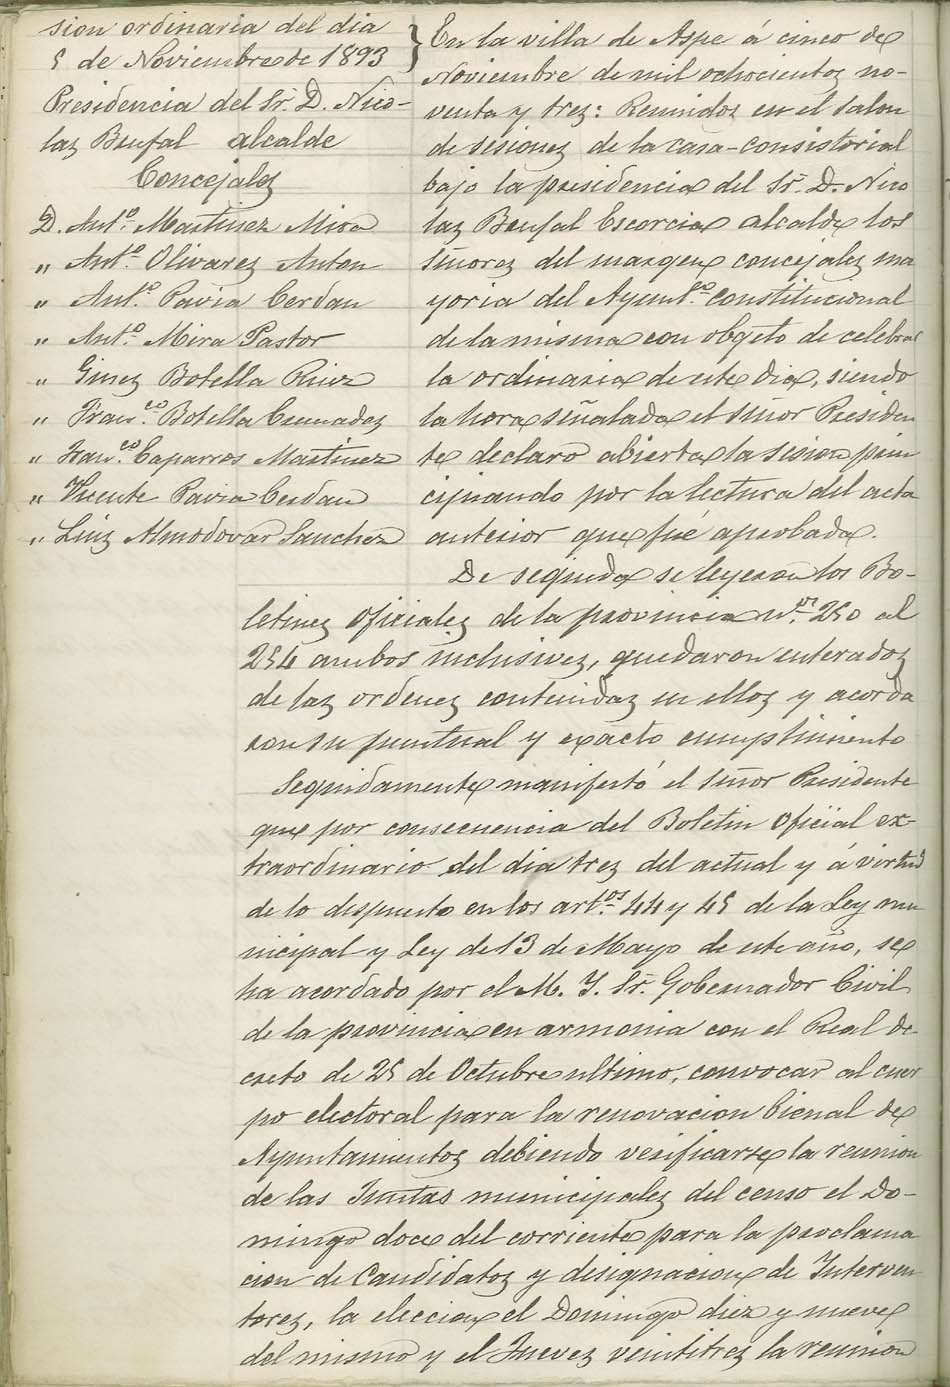 sion ordinaria del dia
5 de Noviembre de 1893
Presidencia del Sr. D. Nico-
las Beufal alcalde
Concejales
D. Antº. Martinez Mira
" Antº. Olivares Anton
" Antº. Pavia Cerdan
" Antº. Mira Pastor
" Gines Botella Ruiz
" Franco. Botella Cremades
" Franco. Caparros Martinez
" Vicente Pavia Cerdan
" Luis Almodovar Sanchez
En la villa de Aspe á cinco de
Noviembre de mil ochocientos no-
venta y tres: Reunidos en el salon
de sesiones de la casa-consistorial
bajo la presidencia del Sr. D. Nico
las Beufal Escorcia alcalde los
señores del margen concejales ma
yoria del Ayuntº. constitucional
de la misma con objeto de celebrar
la ordinaria de este dia, siendo
la hora señalada el señor Presiden
te declaro abierta la sesion prin
cipiando por la lectura del acta
anterior que fué aprobada.
De seguida se leyeron los Bo-
letines Oficiales de la provincia nos. 250 al
254 ambos inclusives, quedaron enterados
de las ordenes contenidas en ellos y acorda
ron su puntual y exacto cumplimiento
Seguidamente manifestó el señor Presidente
que por consecuencia del Boletin Oficial ex-
traordinario del dia tres del actual y á virtud
de lo dispuesto en los artos. 44 y 45 de la Ley mu
nicipal y Ley de 13 de Mayo de este año, se
ha acordado por el M. Y. Sr. Gobernador Civil
de la provincia en armonia con el Real de-
creto de 25 de Octubre ultimo, convocar al cuer
po electoral para la renovacion bienal de
Ayuntamientos debiendo verificarse la reunion
de las Juntas municipales del censo el Do-
mingo doce del corriente para la proclama
cion de Candidatos y designacion de Interven
tores, la eleccion el Domingo diez y nueve
del mismo y el Jueves veintitres la reunion